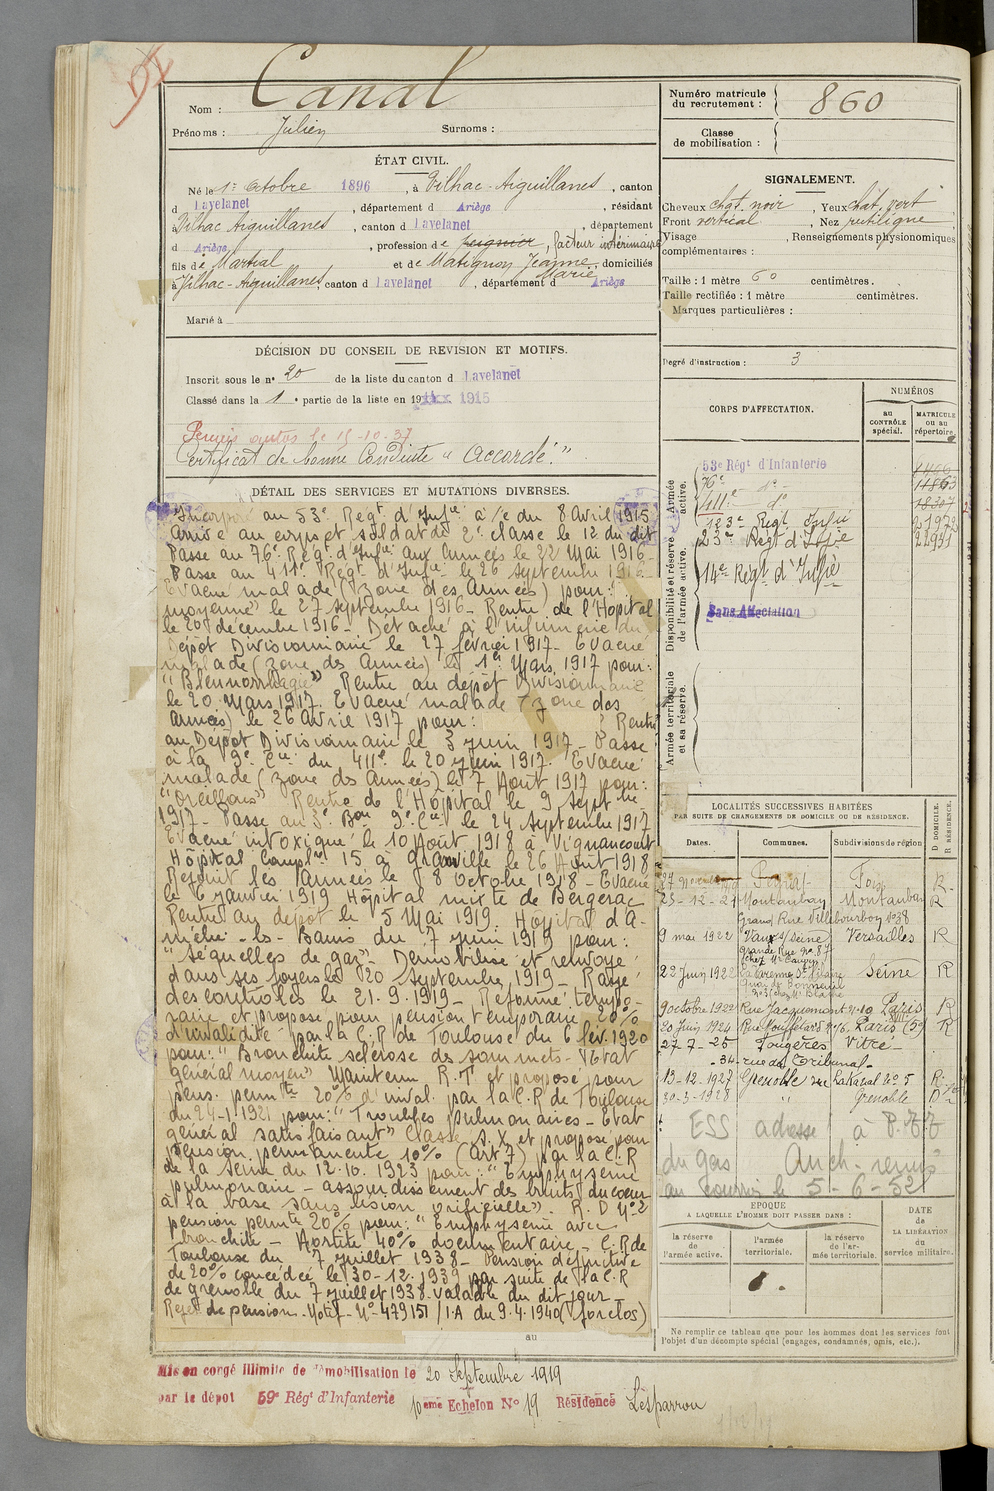 Nom : Canal
Prénoms : Julien Surnoms :
ÉTAT CIVIL.
Né le 1er Octobre 1896, à Vilhac-Aiguillanes, canton
d Lavelanet, département d Ariège, résidant
Vilhac Aiguillanes, canton d Lavelanet, département
d Ariège, profession de facteur intérimaire
fils de Martial et de Matignon Jeanne Marie, domiciliés
à Vilhac-Aiguillanes, canton d Lavelanet, département d Ariège
Marié à
DÉCISION DU CONSEIL DE REVISION ET MOTIFS.
Inscrit sous le n° 20 de la liste du canton d Lavelanet
Classé dans la 1e partie de la liste en 1915
Permis autos le 15-10-37
Certificat de bonne Conduite "Accordé."
DÉTAIL DES SERVICES ET MUTATIONS DIVERSES.
Incorporé au 53e Regt d'Infie à /c du 8 Avril 1915
Arrivé au corps et soldat de 2e classe le 12 du dit
Passe au 76e Regt d'Infie aux Armées le 22 Mai 1916
Passe au 411e Regt d'Infie le 26 septembre 1916
Evacué malade (Zone des Armées) pour :
moyenne" le 27 septembre 1916 - Rentre de l'Hopital
le 20 décembre 1916 - Detaché à l'infirmerie du
Dépôt Divisionnaire le 27 février 1917 - Evacué
malade (zone des Armées) le 1er Mars 1917 pour :
"Blennorrhagie" Rentre au depot Divisionnaire
le 20 Mars 1917. Evacué malade (zone des
Armées) le 26 Avril 1917 pour : Rentré
au Dépôt Divisionnaire le 3 juin 1917 - Passe
à la 9e Cie du 411e le 20 juin 1917. Evacué
malade (zone des Armées) le 7 Août 1917 pour :
"Oreillons" Rentre de l'Hôpital le 9 Septbre
1917 - Passe au 3e Bon 9e Cie le 24 Septembre 1917
Evacué intoxiqué le 10 Août 1918 à Vignancourt
Hôpital Compl. 15 à Granville le 26 Août 1918
Rejoint les Armées le 8 Octobre 1918 - Evacué
le 6 janvier 1919 Hôpital mixte de Bergerac
Rentré au depôt le 5 Mai 1919. Hôpital d'A-
mélie-les-Bains du 7 juin 1919 pour :
"séquelles de gaz" Demobilisé et renvoyé
dans ses foyers le 20 septembre 1919 - Rayé
des contrôles le 21.9.1919 - Reformé tempo-
raire et proposé pour pension temporaire 20%
d'invalidité par la C.R de Toulouse du 6 fév. 1920
pour : "Bronchite sclérose des sommets - Etat
général moyen" Maintenu R.T et proposé pour
pens. permte 20% d'inval. par la C.R de Toulouse
du 24-1-1921 pour : "Troubles pulmonaires - Etat
général satisfaisant" Classé s.X et proposé pour
pension permanente 10% (Art 7) par la C.R
de la Seine du 12.10.1923 pour : "Emphysème
pulmonaire - assourdissement des bruits du coeur
à la base sans lésion orificielle". R.D n°2
pension permte 20% pour : "Emphysème avec
bronchite - Aortite 40% documentaire - C.R de
Toulouse du 7 juillet 1938 - Pension définitive
de 20% concédée le 30-12-1939 par suite de la C.R
de Grenoble du 7 juillet 1938 valable du dit jour -
Rejet de pension - Notif. N° 479151/1.A du 9.4.1940 (forclos)
au
Mis en congé illimité de démobilisation le 20 Septembre 1919
par le dépôt 59e Régt d'Infanterie 10eme Echelon N° 19 Résidence Lesparrou
Numéro matricule du recrutement : 860
Classe de mobilisation :
SIGNALEMENT.
Cheveux chat. noir, Yeux chat. vert
Front vertical, Nez rectiligne
Visage, Renseignements physionomiques
complémentaires :
Taille : 1 mètre 60 centimètres.
Taille rectifiée : 1 mètre centimètres.
Marques particulières :
Degré d'instruction : 3
CORPS D'AFFECTATION.
NUMÉROS
au CONTRÔLE spécial.
MATRICULE ou au répertoire.
Armée active.
53e Régt d'Infanterie
76e d°
411e d° 18307
123e Regt Infie 21972
23e Regt d'Infie 22931
Disponibilité et réserve de l'armée active.
14e Regt d'Infie
Sans Affectation
Armée territoriale et sa réserve.
LOCALITÉS SUCCESSIVES HABITÉES
PAR SUITE DE CHANGEMENTS DE DOMICILE OU DE RÉSIDENCE.
Dates. Communes. Subdivisions de région
D DOMICILE. R RÉSIDENCE.
Foix R
23-12-21 Montauban Montauban R
Grand Rue Villebourbon n°38
9 mai 1922 Vaux s/Seine Versailles R
Grande Rue n° 87
22 Juin 1922 La Varenne St Hilaire Seine R
Quai de Bonneuil
9 octobre 1922 Rue Jacquemont n°10 Paris R
20 Juin 1924 Rue Mouffetard n°76, Paris (5e) R
27-7-25 Fougères Vitré
34 rue du Tribunal
13-12-1927 Grenoble rue Lakanal n° 5 R
30-3-1928 " Grenoble D
ESS adresse à P.T.T
du gers Auch - remis
au courrier le 5-6-52
EPOQUE
A LAQUELLE L'HOMME DOIT PASSER DANS :
la réserve de l'armée active.
l'armée territoriale.
la réserve de l'armée territoriale.
DATE de LA LIBÉRATION du service militaire.
Ne remplir ce tableau que pour les hommes dont les services font
l'objet d'un décompte spécial (engagés, condamnés, omis, etc.).